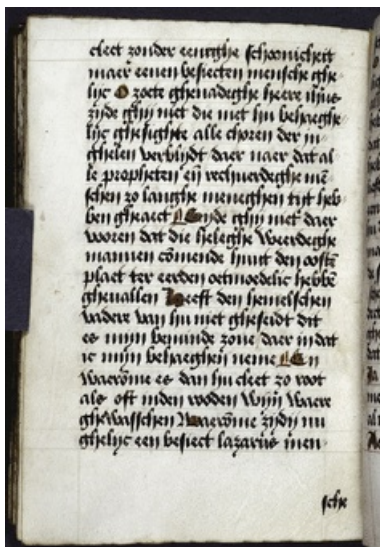 cleet zonder eenighe schoonicheit
maer eenen besiecten mensche ghe
lijc O zoete ghenadeghe heere ihesus
zijde ghij niet die met hu behaeghe
lijc ghesichte alle choren der in
ghelen verblijdt daer naer dat al
le propheten eñ rechuerdeghe mē
schen zo langhe meneghen tijt heb
ben ghehaect Ende ghij niet daer
voren dat die heleghe weerdeghe
mannen comende huut den oostē
plaet ter eerden oetmoedelic hebbē
gheuallen Heeft den hemelschen
vadere van hu niet gheseidt dit
es mijn beminde zone daer in dat
ic mijn behaeghen neme En
waerōme es dan hu cleet zo root
als oft inden rooden wijn waere
ghewasschen Waerōme zijdij nu
ghelijc een besiect lazarus men
sche